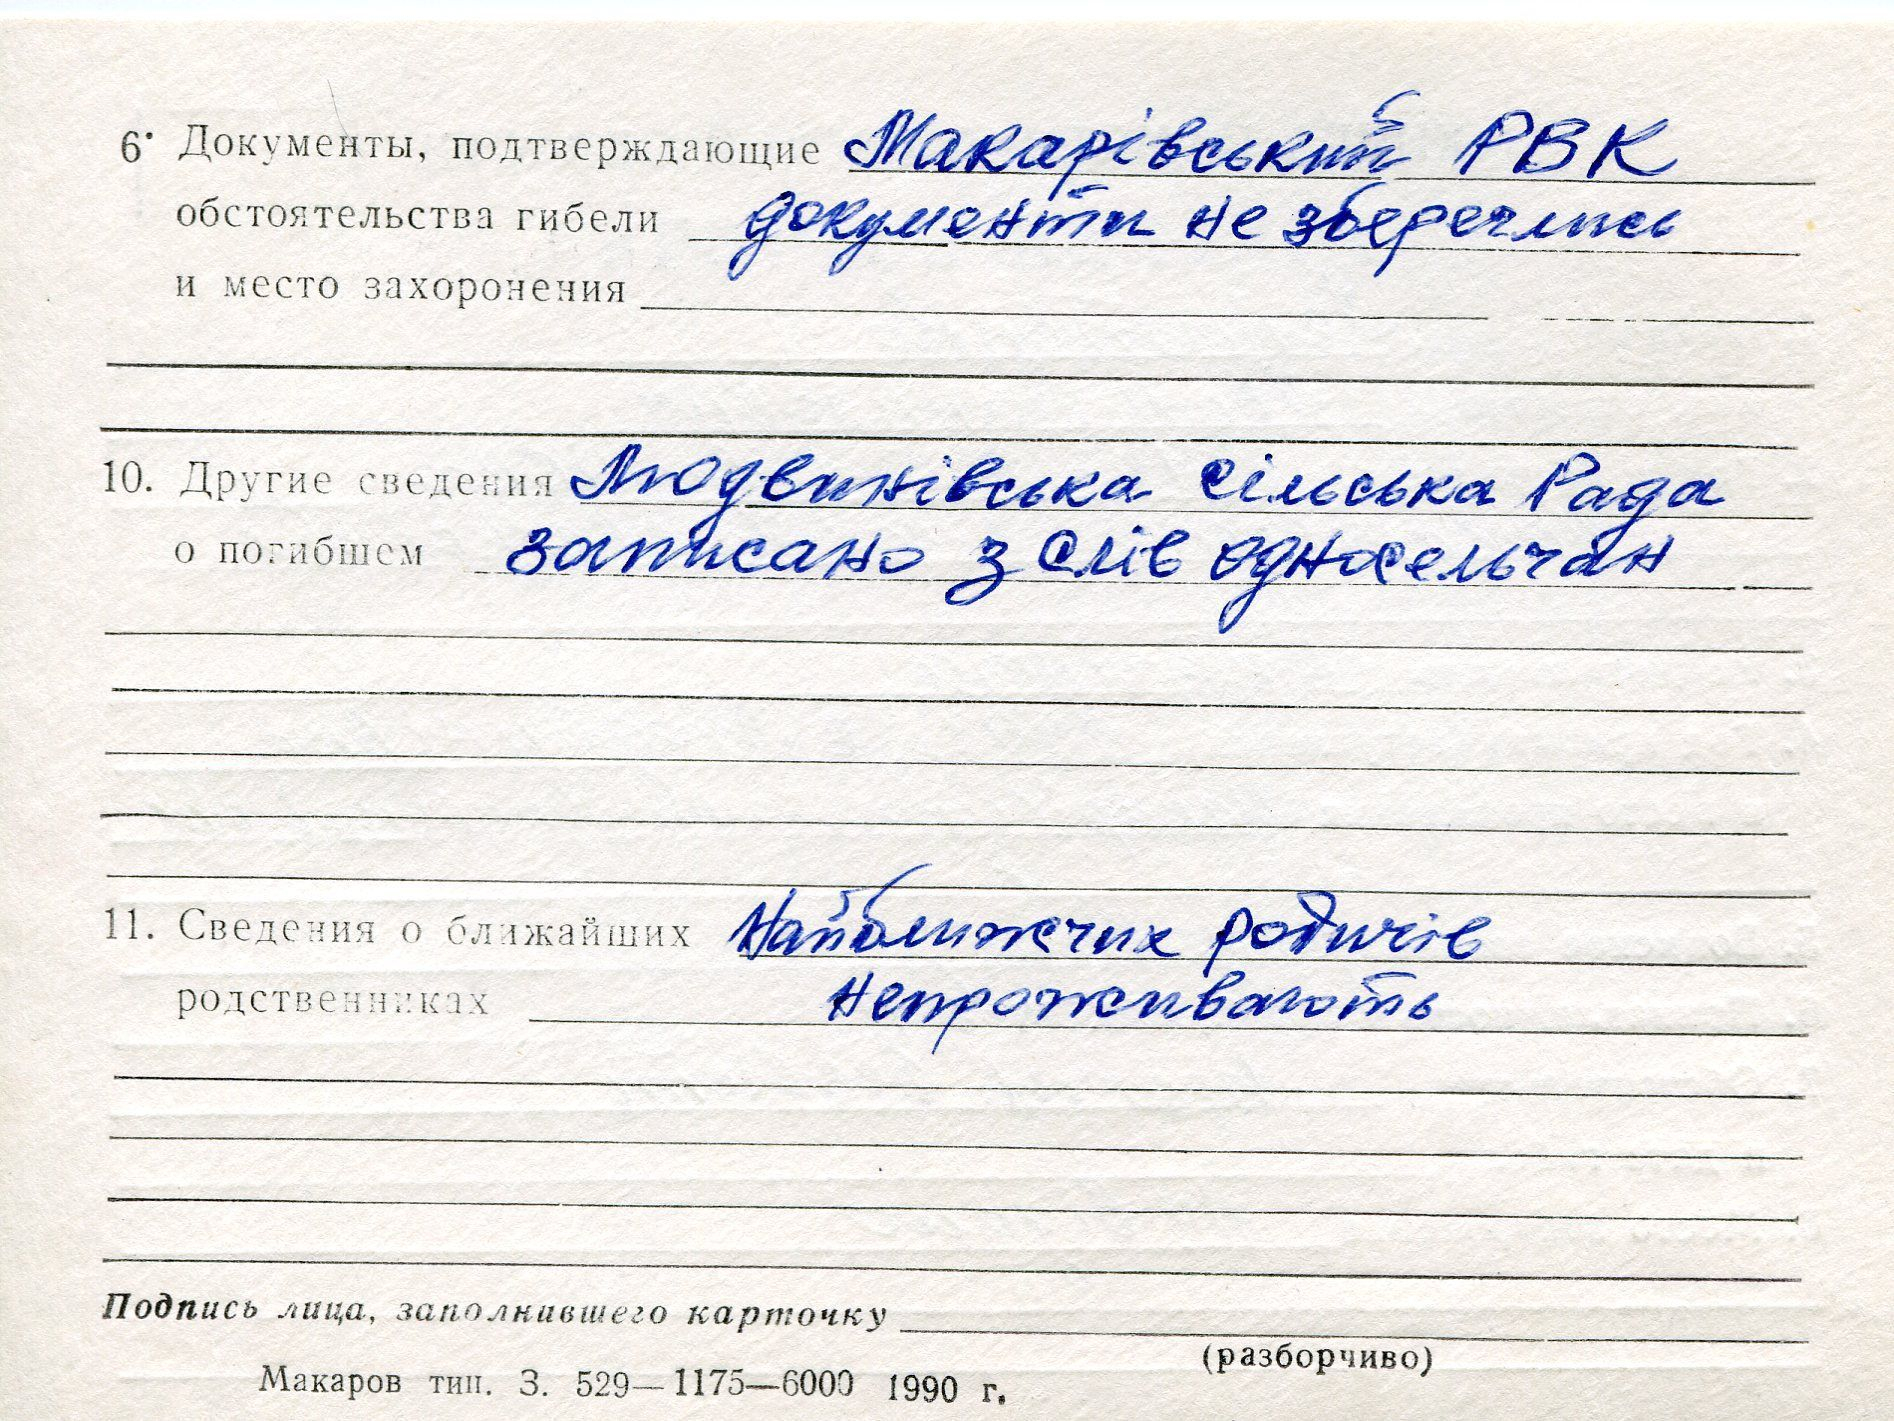 6. Документы, подтверждающие Макарівський РВК
обстоятельства гибели документи не збереглись
и место захоронения
10. Другие сведения Людвинівська сільська Рада
о погибшем записано з слів односельчан
11. Сведения о ближайших Найближчих родичів
родственниках непроживають
Подпись лица, заполнившего карточку
(разборчиво)
Макаров тип. З. 529—1175—6000 1990 г.